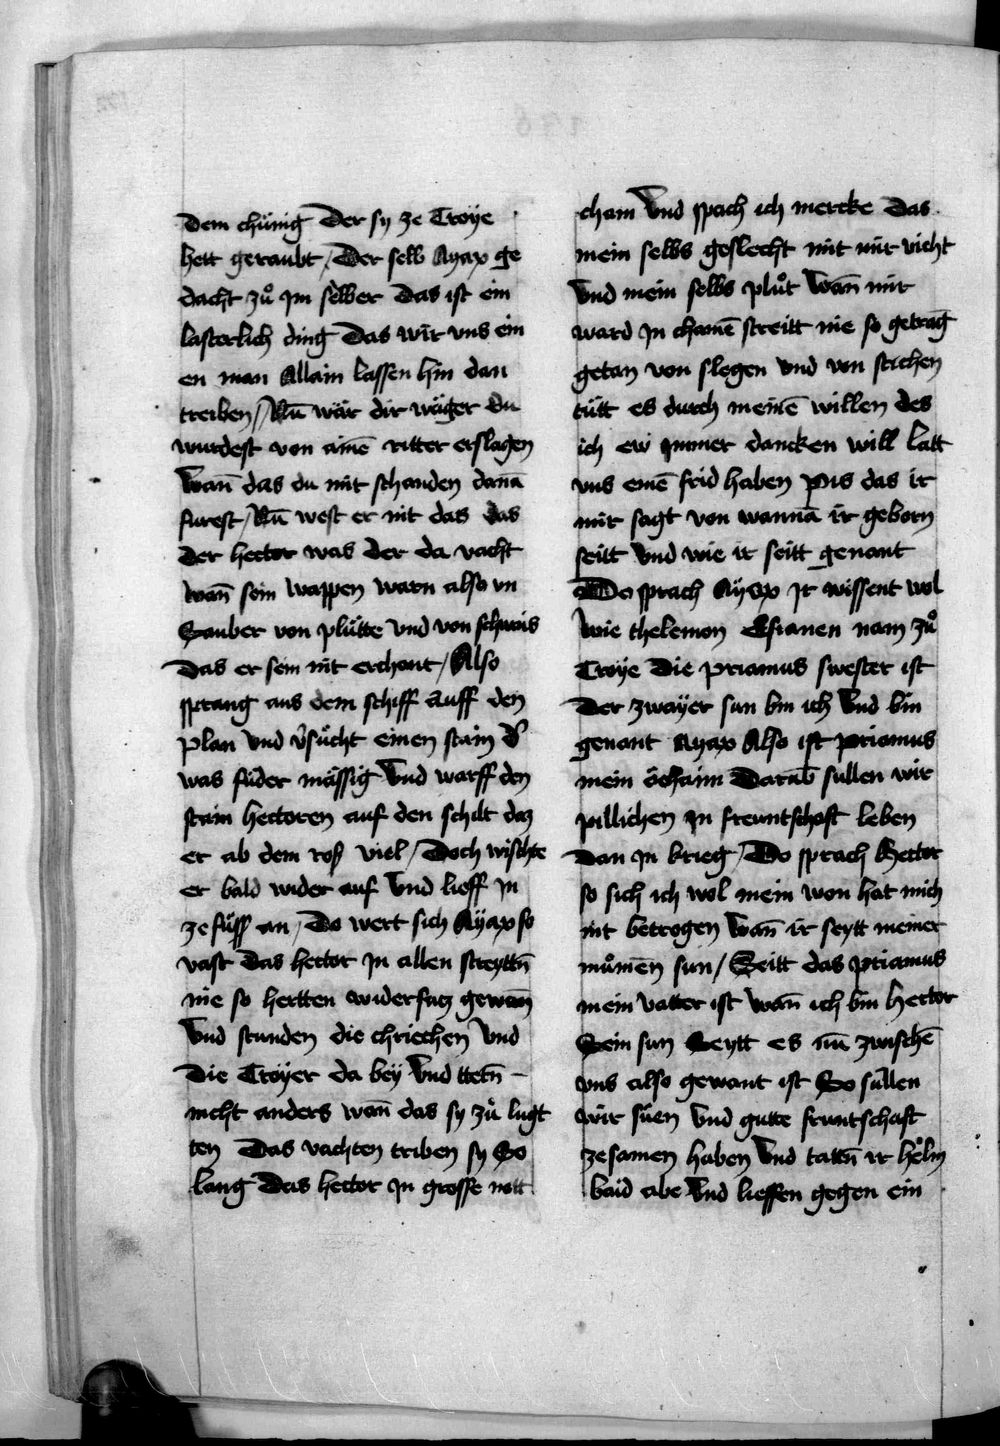 dem chünig Der sy ze Troye
hett geraubt / Der selb Ayax ge
dacht zů Im selber Das ist ein
lasterlich ding Das wir vns ein
en man Allain lassen hin dan
treiben / Nū wär dir wäger du
wurdest von ainē ritter erslagen
Wan̄ das du mit schanden danā
furest / Nū west er nit das das
der hector was der da vacht
wan̄ sein wappen warn also vn
Sauber von plůtte vnd von schwais
das er sein nit erchant / Also
sprang aus dem schiff auff den
plan vnd v̄sůcht einen stain d'
was fůder mässig Vnd warff den
stain hectoren auf den schilt daz
er ab dem roß viel / Doch wischte
er bald wider auf Vnd lieff In
ze fůß an / Do wert sich Ayax so
vast das hector In allen streyttn̄
nie so hertten widersacz gewan̄
Vnd stunden die chriechen Vnd
die Troyer da bey Vnd tetn̄
nicht anders wan̄ das sy zů lugt
ten Das vachten triben sy So
lang Das hector In grosse nott
cham Vnd sprach ich mercke das
mein selbs geslecht mit mir vicht
Vnd mein selbs plůt Wan̄ mir
ward In chainē streitt nie so getrāg
getan von slegen vnd von stichen
tůtt es durch meinē willen des
ich ew Immer dancken will Latt
vns einē frid haben pis das ir
mir sagt von wannā ir geborn
seitt Vnd wie ir seitt genant
Do sprach Ayax Ir wissent wol
wie thelemon Esianen nam zů
Troye die priamus swester ist
Der zwayer sun bin ich Vnd bin
genant Ayax Also ist priamus
mein öchaim Darab sullen wir
pillichen In freuntschaft leben
dan In krieg / Do sprach Hector
so sich ich wol mein won hat mich
nit betrogen Wan̄ ir seytt meiner
můmen sun / Seitt das priamus
mein vatter ist wan̄ ich bin hector
Sein sun Seytt es nū zwischē
vns also gewant ist So süllen
wir süen Vnd gutte fruntschaft
zesamen haben Vnd tattn̄ ir helm
baid abe Vnd lieffen gegen ein